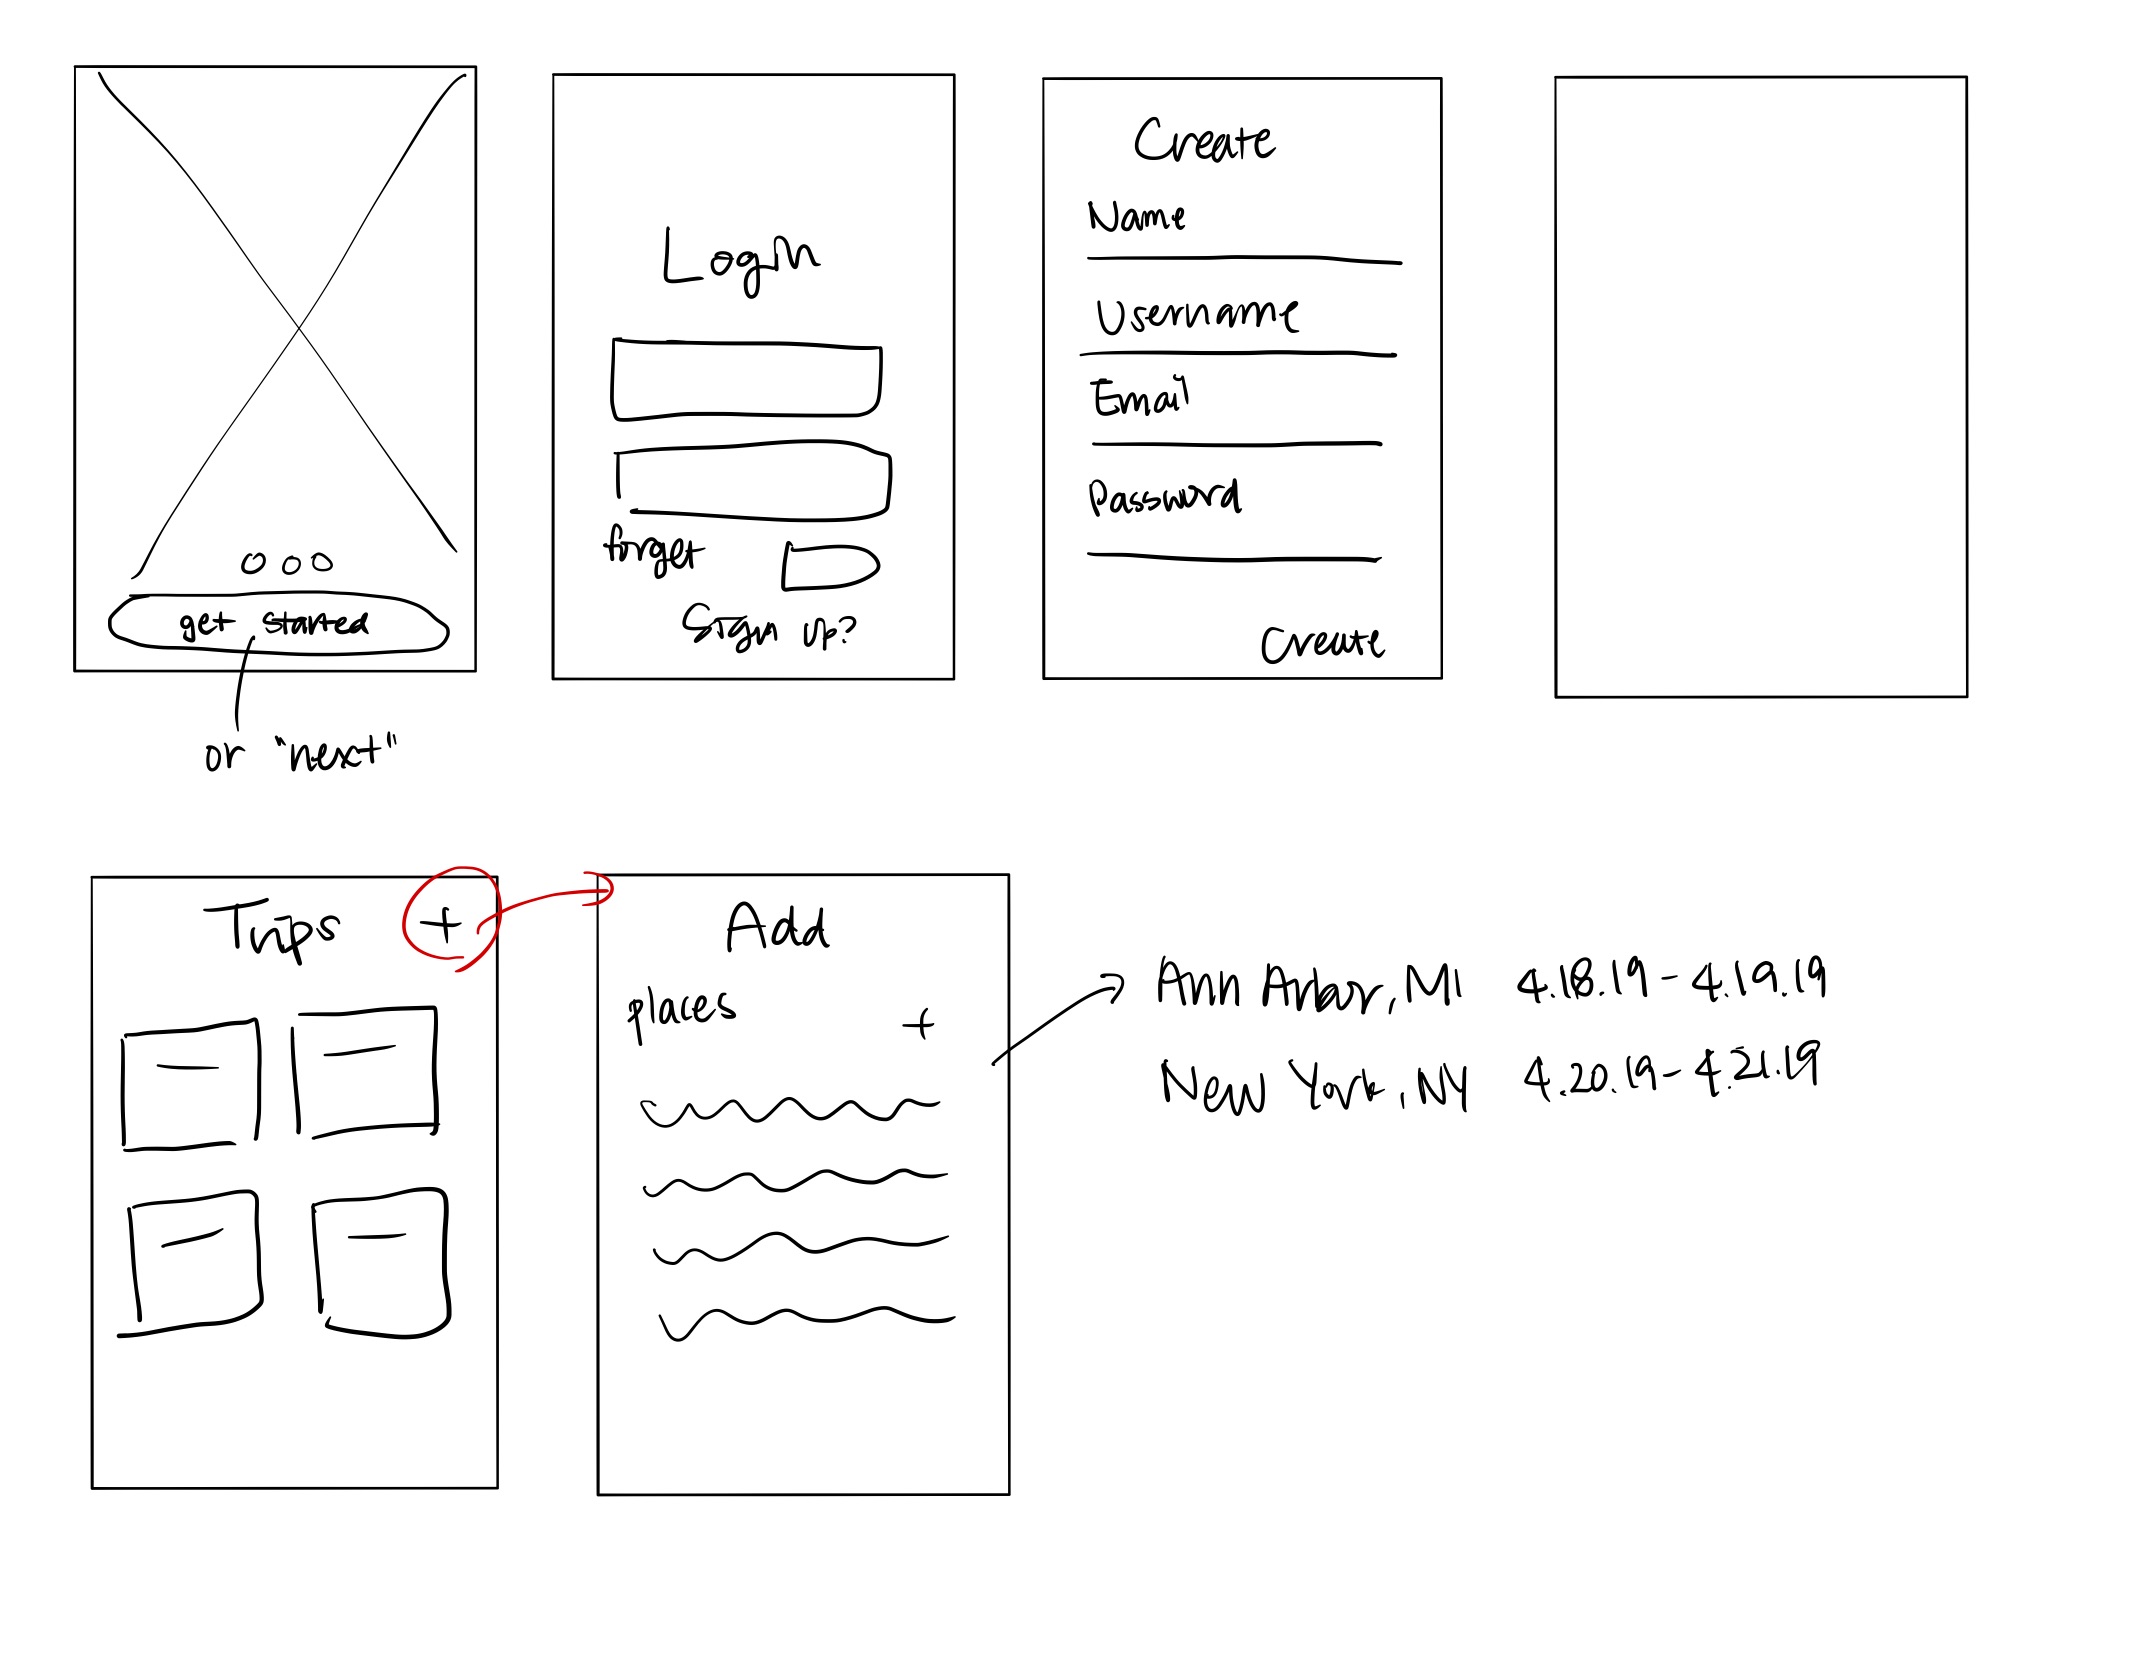 get started
or "next"
Login
forget
Sign up?
Create
Name
Username
Email
Password
Create
Trips +
Add
places
+
Ann Arbor, MI 4.18.19 - 4.19.19
New York, NY 4.20.19 - 4.21.19